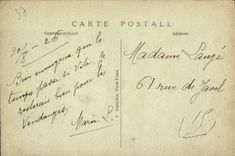 37
CARTE POSTALE
Correspondance
Adresse
20/9-26
Bien ennuyeux que le
temps passe si vite. Je
resterais bien pour les
Vendanges.
Marie L.
Madame Langé
61 rue de Javel
(15)